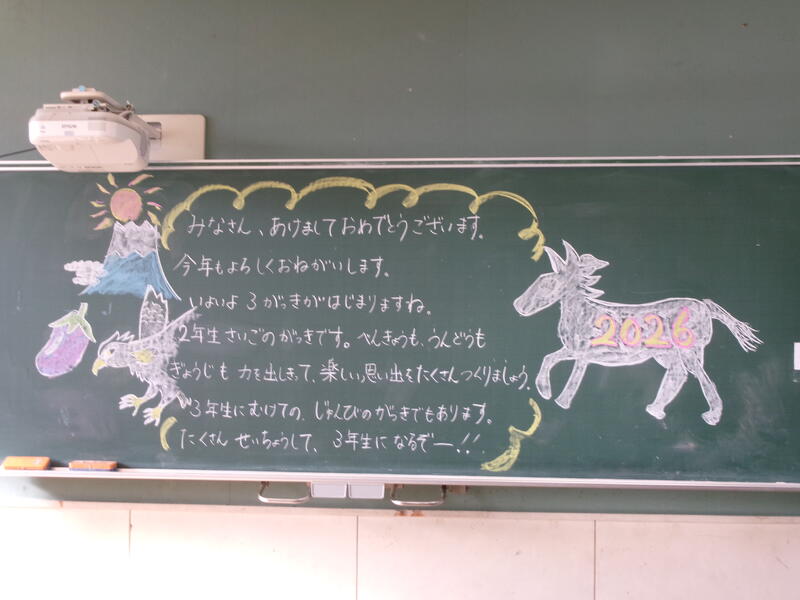 EPSON
みなさん、あけましておめでとうございます。
今年もよろしくおねがいします。
いよいよ3がっきがはじまりますね。
2年生さいごのがっきです。べんきょうも、うんどうも
ぎょうじも力を出しきって、楽しい思い出をたくさんつくりましょう。
3年生にむけての、じゅんびのがっきでもあります。
たくさんせいちょうして、3年生になるぞー!!
2026